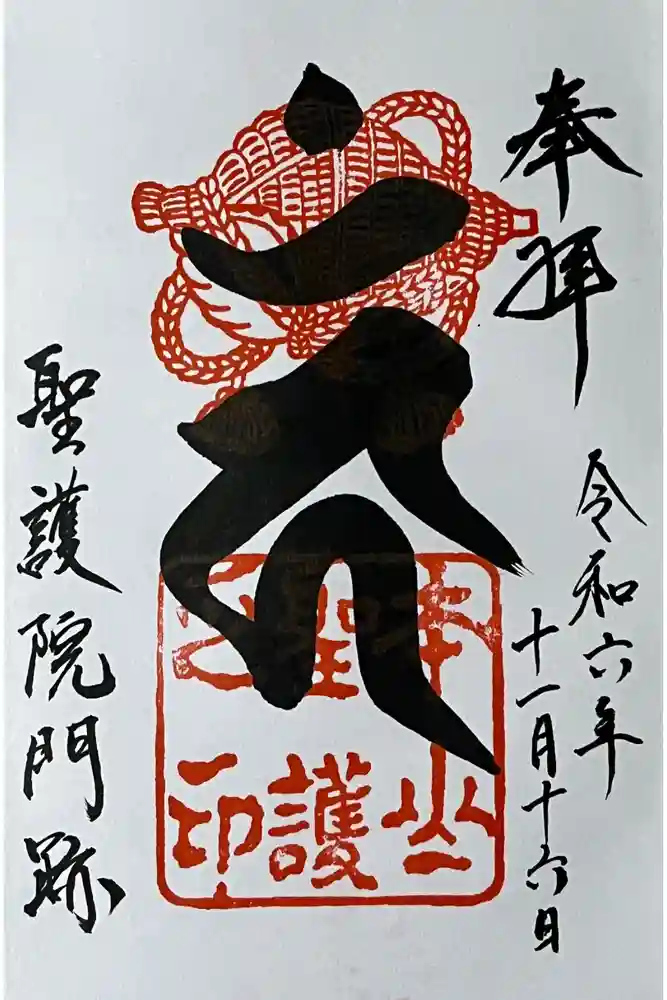 奉拝
令和六年
十一月十六日
聖護
印
聖護院門跡